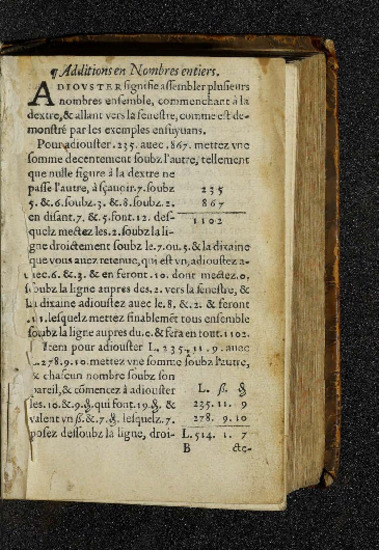 ¶ Additions en Nombres entiers.
ADIOVSTER signifie assembler plusieurs
nombres ensemble, commenchant à la
dextre, & allant vers la senestre, comme est de-
monstré par les exemples ensuyuans.
Pour adiouster .235. auec .867. mettez vne
somme decentement soubz l'autre, tellement
que nulle figure à la dextre ne
passe l'autre, à sçauoir .7. soubz 235
5. & .6. soubz .3. & .8. soubz .2. 867
en disant .7. & .5. font .12. des- 1102
quelz mectez les .2. soubz la li-
gne droictement soubz le .7. ou .5. & la dixaine
que vous auez retenue, qui est vn, adioustez a-
uec .6. & .3. & en feront .10. dont mectez .0.
soubz la ligne aupres des .2. vers la senestre, &
la dixaine adioustez auec le .8. & .2. & feront
.11. lesquelz mettez finablemẽt tous ensemble
soubz la ligne aupres du .0. & fera en tout .1102.
Item pour adiouster L.235.11.9. auec
L.278.9.10. mettez vne somme soubz l'autre,
& chascun nombre soubz son
pareil, & cõmencez à adiouster L. ß. ₰
les .10. & .9. ₰. qui font .19. ₰. & 235. 11. 9
valent vn ß. & .7. ₰. lesquelz .7. 278. 9. 10
posez dessoubz la ligne, droi- L.514. 1. 7
B cte-